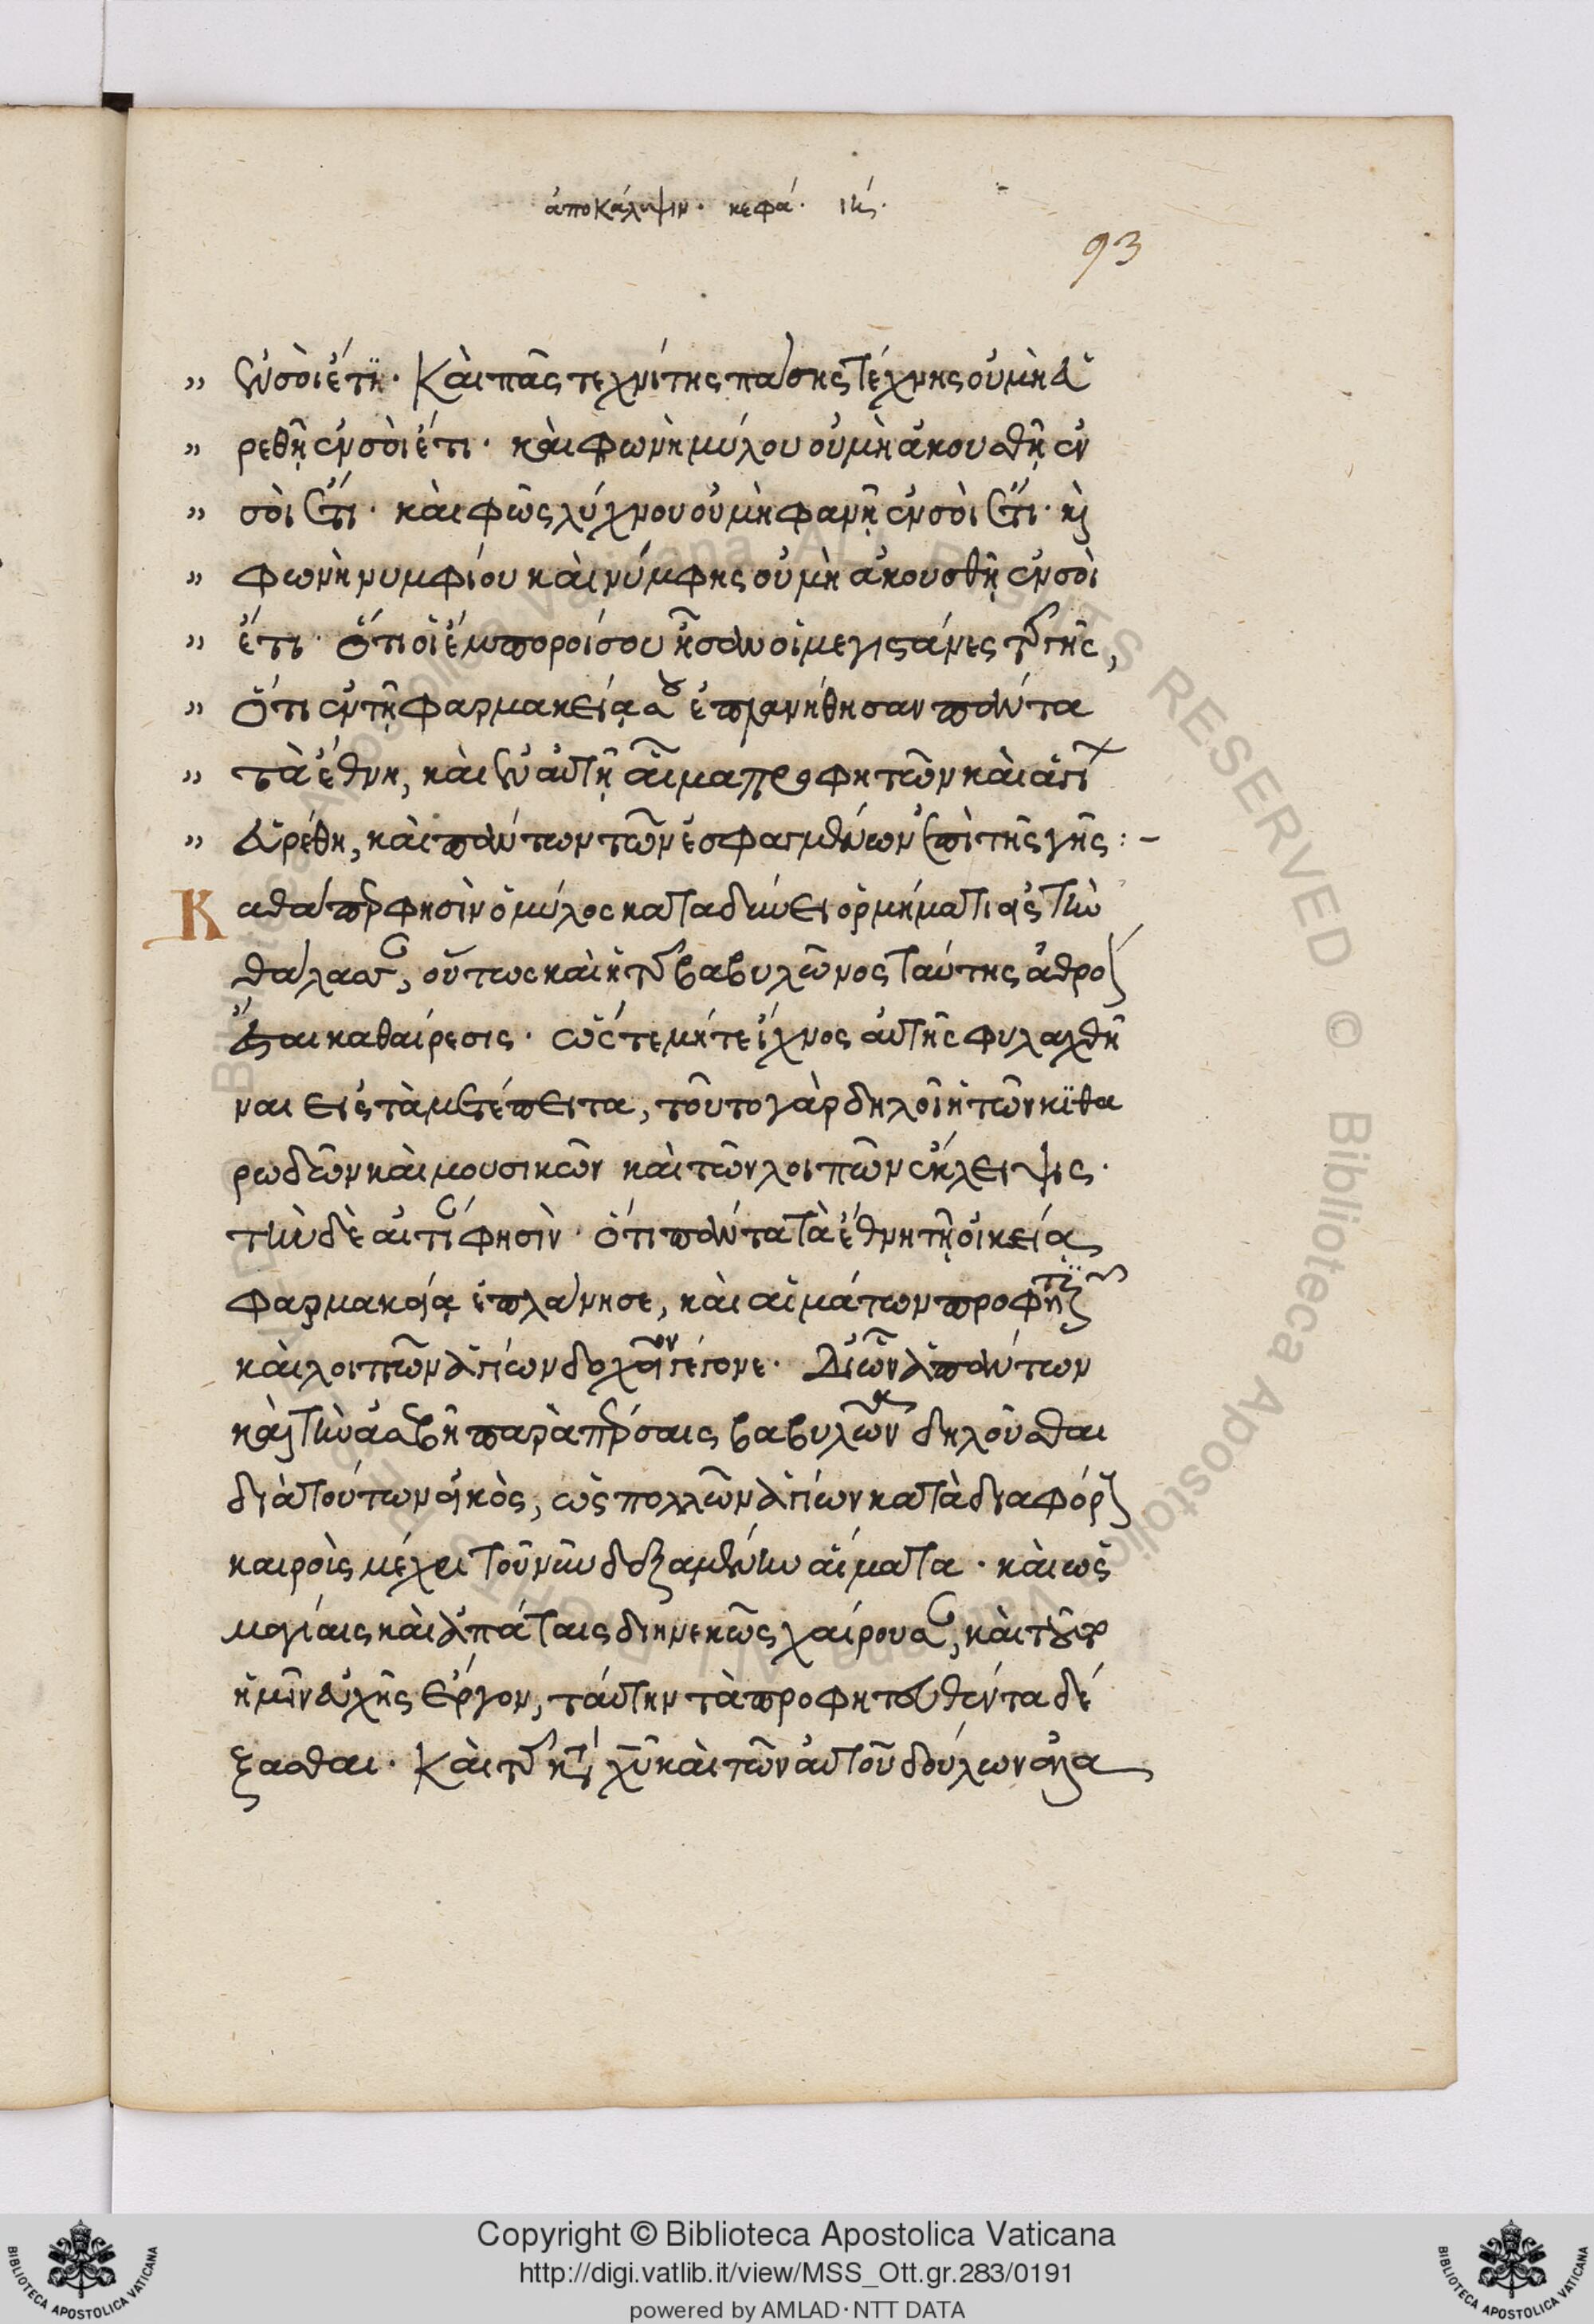 ἀποκάλυψιν. κεφά. ιη΄.
93
„ ἐν σοὶ ἔτι. Καὶ πᾶς τεχνίτης πάσης τέχνης οὐ μὴ εὑ
„ ρεθῇ ἐν σοὶ ἔτι. καὶ φωνὴ μύλου οὐ μὴ ἀκουσθῇ ἐν
„ σοὶ ἔτι. καὶ φῶς λύχνου οὐ μὴ φανῇ ἐν σοὶ ἔτι. κὶ
„ φωνὴ νυμφίου καὶ νύμφης οὐ μὴ ἀκουσθῇ ἐν σοὶ
„ ἔτι. ὅτι οἱ ἔμποροί σου ἦσαν οἱ μεγιστάνες τῆς γῆς,
„ ὅτι ἐν τῇ φαρμακείᾳ σου ἐπλανήθησαν πάντα
„ τὰ ἔθνη, καὶ ἐν αὐτῇ αἷμα προφητῶν καὶ ἁγίων
„ εὑρέθη, καὶ πάντων τῶν ἐσφαγμένων ἐπὶ τῆς γῆς :-
Καθάπερ φησὶν ὁ μύλος καταδύνει ὁρμήματι εἰς τὴν
θάλασσαν, οὕτως καὶ ἡ τῆς βαβυλῶνος ταύτης ἀθρόον
ἔσται καθαίρεσις. ὥστε μήτε ἴχνος αὐτῆς φυλαχθῆ
ναι εἰς τὰ μετέπειτα, τοῦτο γὰρ δηλοῖ ἡ τῶν κιθα
ρωδῶν καὶ μουσικῶν καὶ τῶν λοιπῶν ἔκλειψις.
τὴν δὲ αἰτίαν φησὶν. ὅτι πάντα τὰ ἔθνη τῇ οἰκείᾳ
φαρμακείᾳ ἐπλάνησε, καὶ αἱμάτων προφητῶν
καὶ λοιπῶν ἁγίων δοχεῖον γέγονε. Δι ὧν ἁπάντων
καὶ τὴν ἀσεβῆ παρὰ πέρσαις βαβυλῶνα δηλοῦσθαι
διὰ τούτων εἰκὸς, ὡς πολλῶν ἁγίων κατὰ διαφόρους
καιροὺς μέχρι τοῦ νῦν δεξαμένην αἵματα. καὶ ὡς
μαγίαις καὶ ἀπάταις διηνεκῶς χαίρουσαν, καὶ τοῦτο
ἡμῖν εὐχῆς ἔργον, ταύτην τὰ προφητευθέντα δέ
ξασθαι. Καὶ τῆς κατὰ χυ καὶ τῶν αὐτοῦ δούλων ἀλα
Copyright © Biblioteca Apostolica Vaticana
http://digi.vatlib.it/view/MSS_Ott.gr.283/0191
powered by AMLAD·NTT DATA